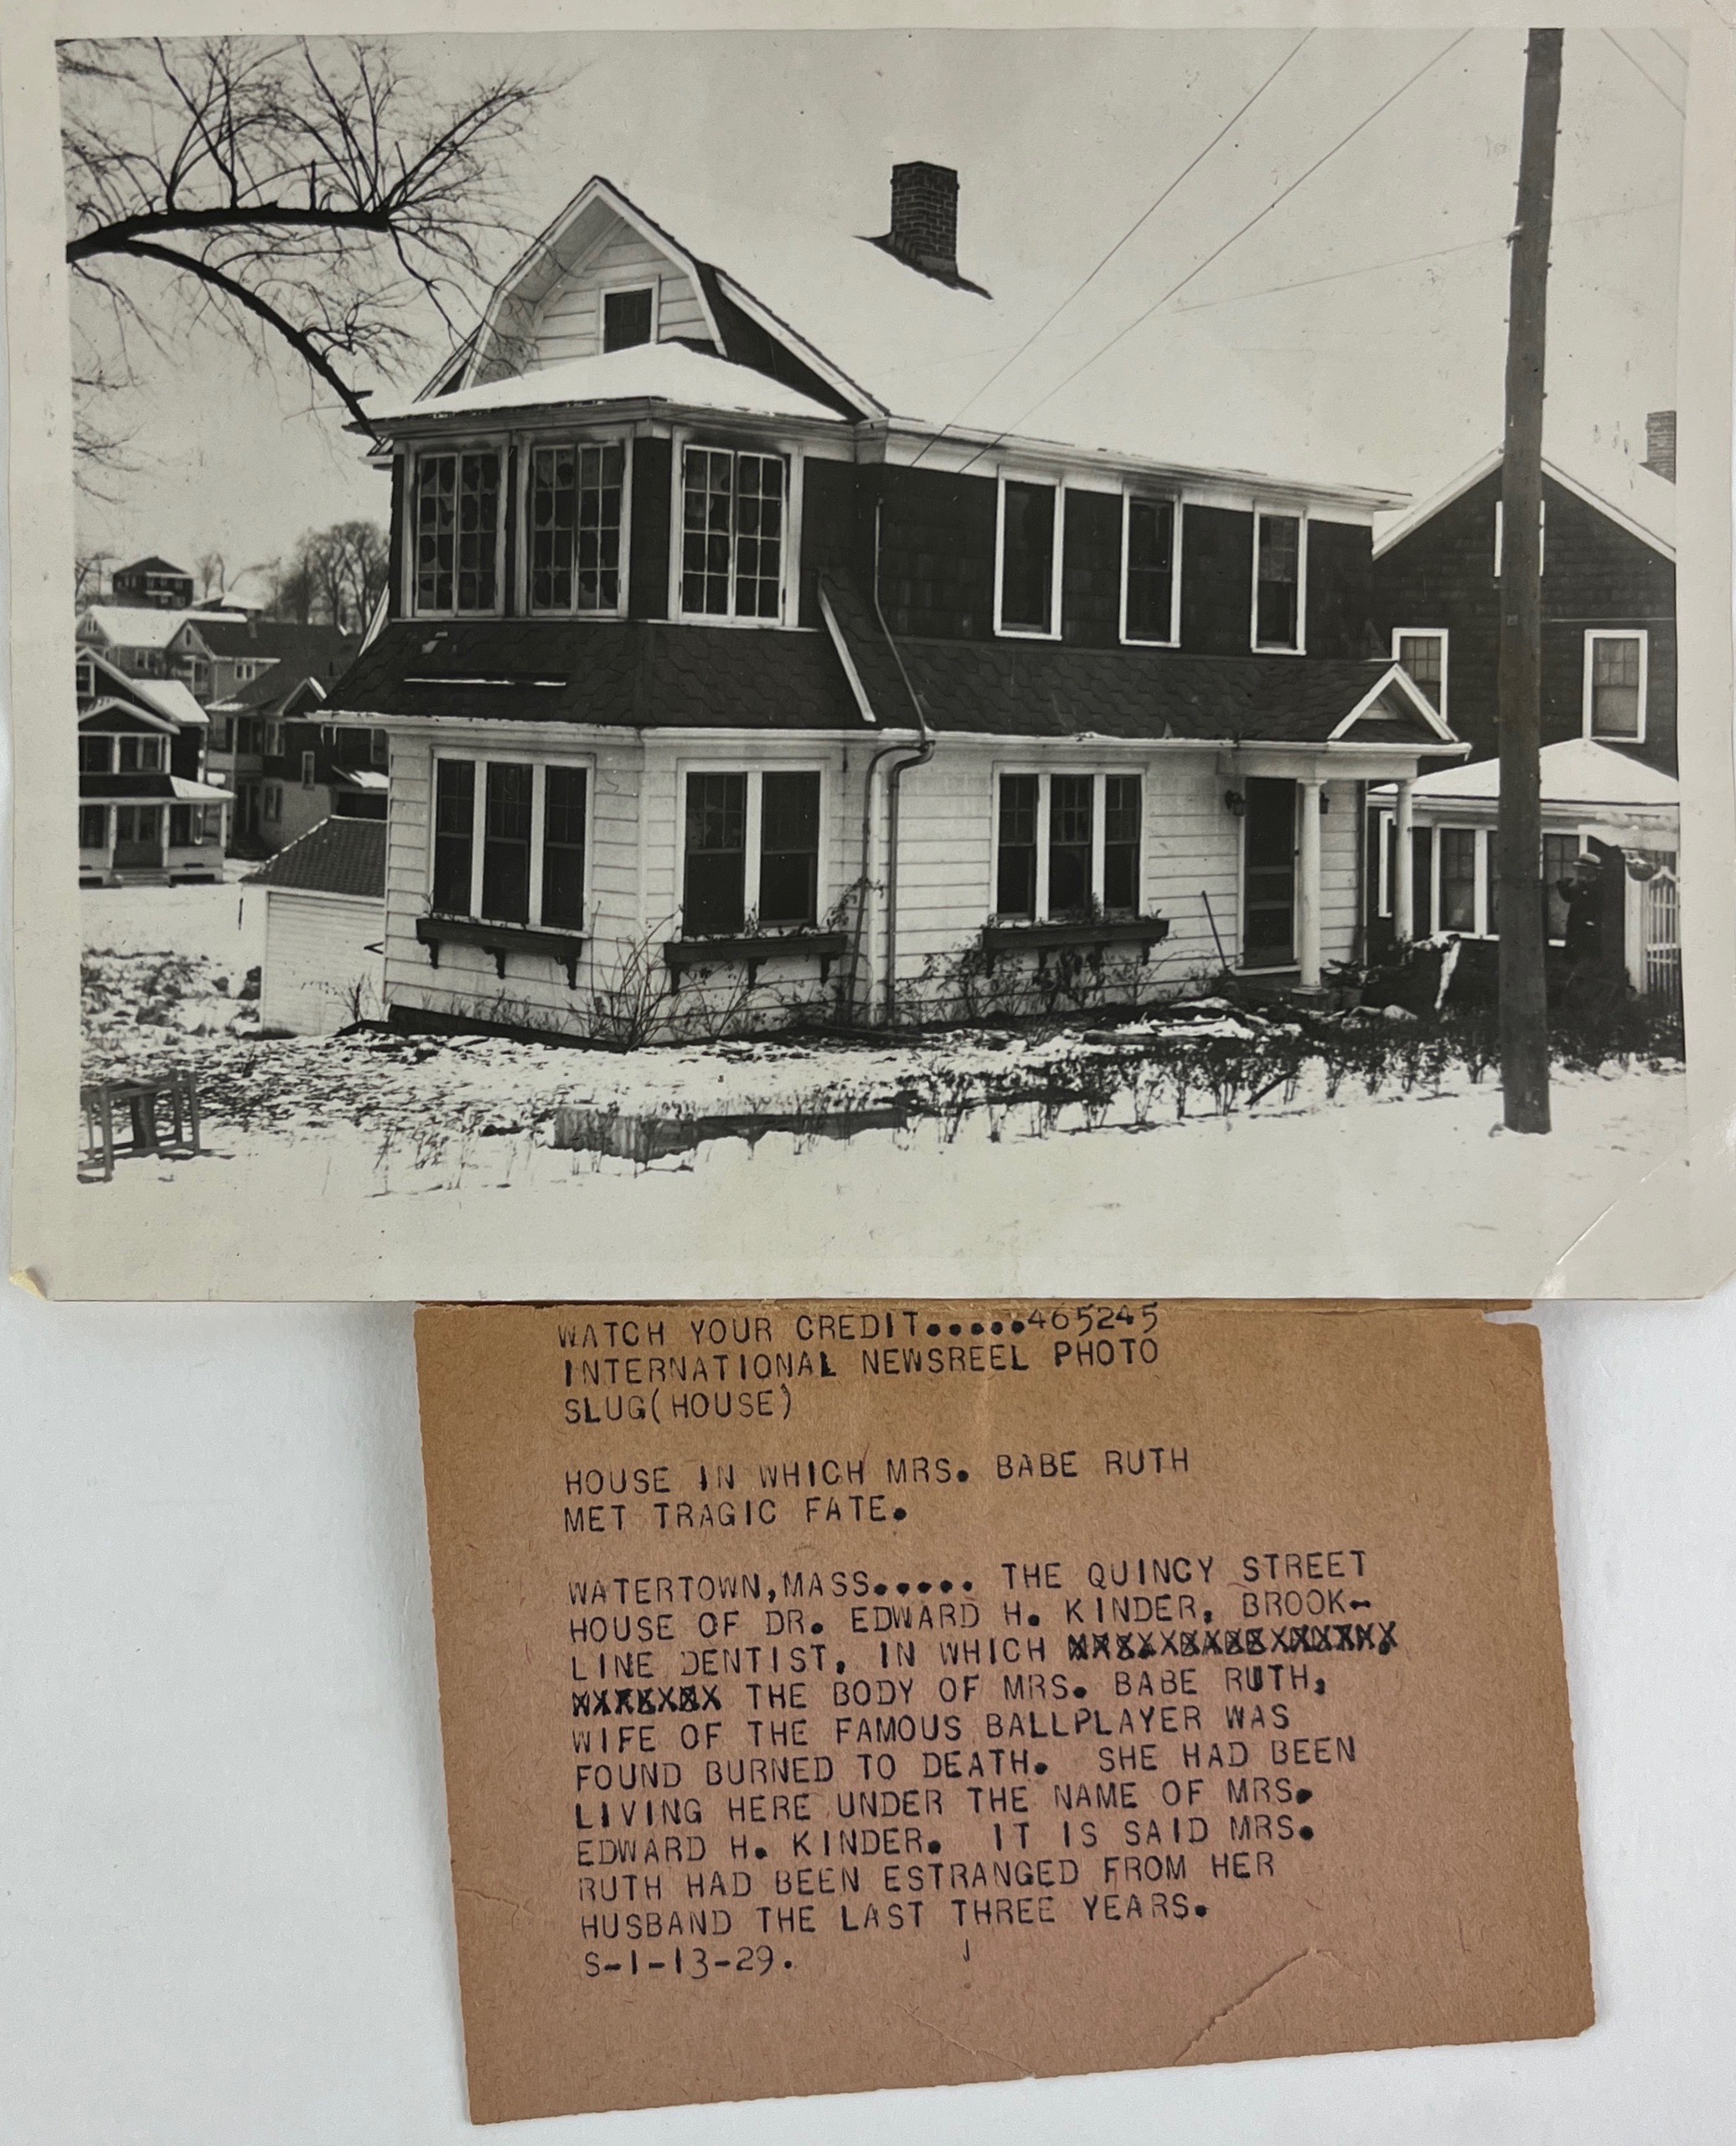 WATCH YOUR CREDIT.....465245
INTERNATIONAL NEWSREEL PHOTO
SLUG(HOUSE)
HOUSE IN WHICH MRS. BABE RUTH
MET TRAGIC FATE.
WATERTOWN,MASS..... THE QUINCY STREET
HOUSE OF DR. EDWARD H. KINDER, BROOK-
LINE DENTIST, IN WHICH
THE BODY OF MRS. BABE RUTH,
WIFE OF THE FAMOUS BALLPLAYER WAS
FOUND BURNED TO DEATH. SHE HAD BEEN
LIVING HERE UNDER THE NAME OF MRS.
EDWARD H. KINDER. IT IS SAID MRS.
RUTH HAD BEEN ESTRANGED FROM HER
HUSBAND THE LAST THREE YEARS.
S-1-13-29.